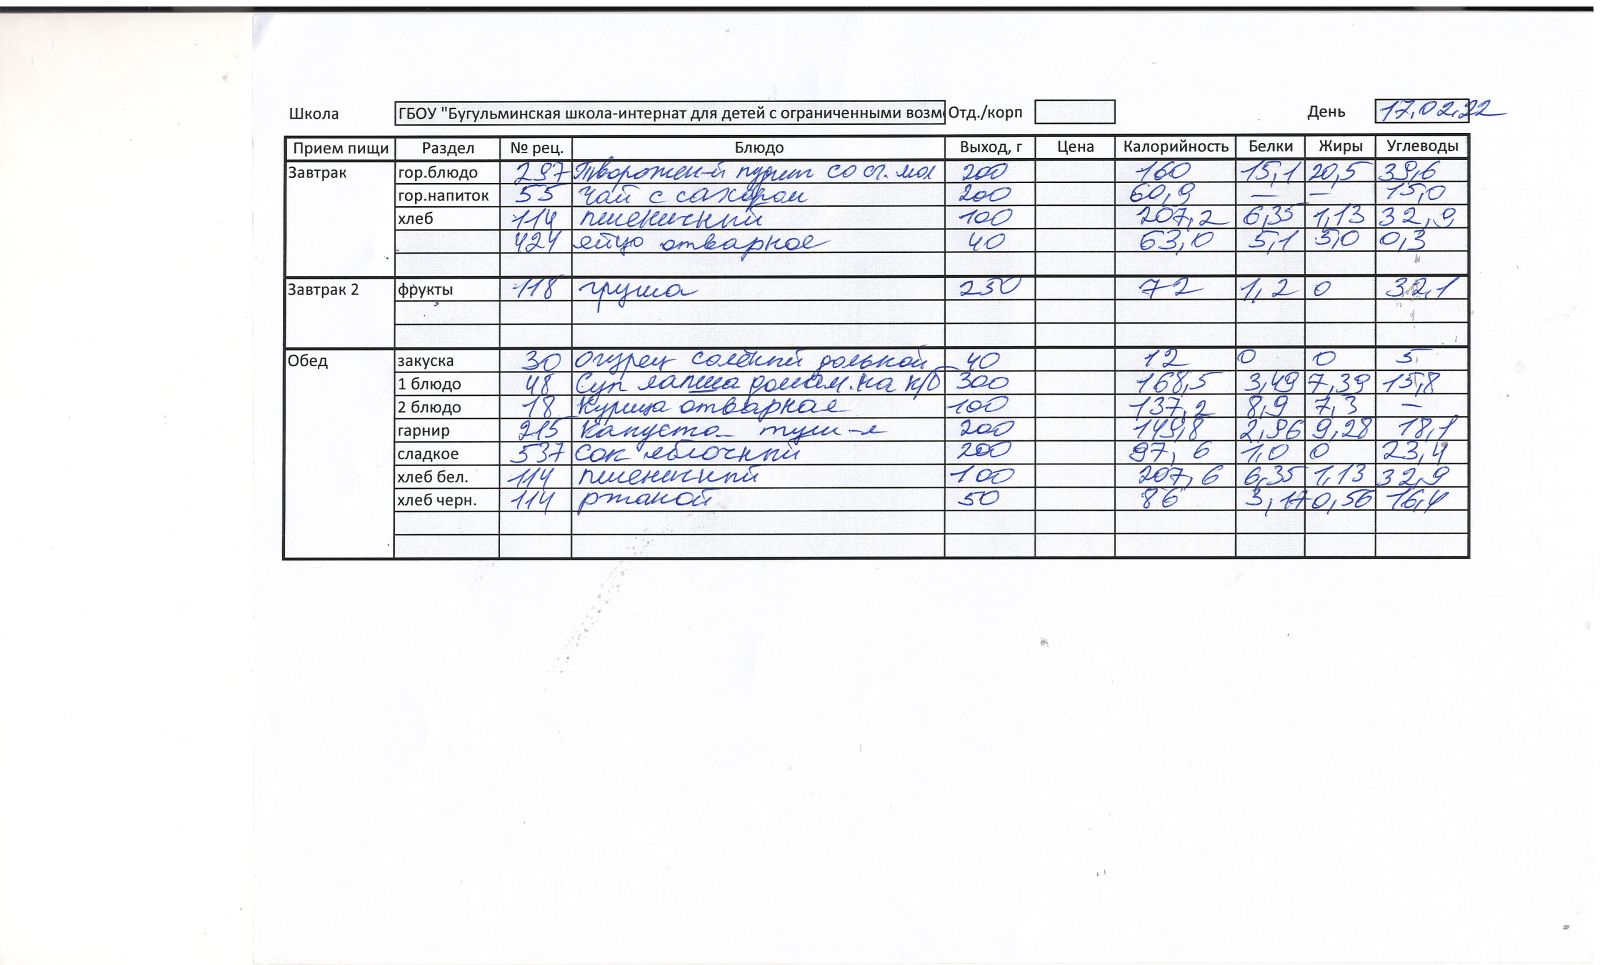 Школа ГБОУ "Бугульминская школа-интернат для детей с ограниченными возм Отд./корп День 17.02.22
Прием пищи Раздел № рец. Блюдо Выход, г Цена Калорийность Белки Жиры Углеводы
Завтрак гор.блюдо 297 Творожен-й пудинг со сг. мол 200 160 15,1 20,5 39,6
гор.напиток 55 Чай с сахаром 200 60,9 — — 15,0
хлеб 114 пшеничный 100 207,2 6,35 1,13 32,9
424 яйцо отварное 40 63,0 5,1 5,0 0,3
Завтрак 2 фрукты 118 груша 250 72 1,2 0 32,1
Обед закуска 30 огурец солёный долькой 40 12 0 0 5
1 блюдо 48 Суп лапша домаш. на к/б 300 168,5 3,49 7,39 15,8
2 блюдо 18 Курица отварная 100 137,2 8,9 7,3 —
гарнир 215 Капуста туш-я 200 149,8 2,96 9,28 18,1
сладкое 537 Сок яблочный 200 97,6 1,0 0 23,4
хлеб бел. 114 пшеничный 100 207,6 6,35 1,13 32,9
хлеб черн. 114 ржаной 50 86 3,17 0,56 16,4